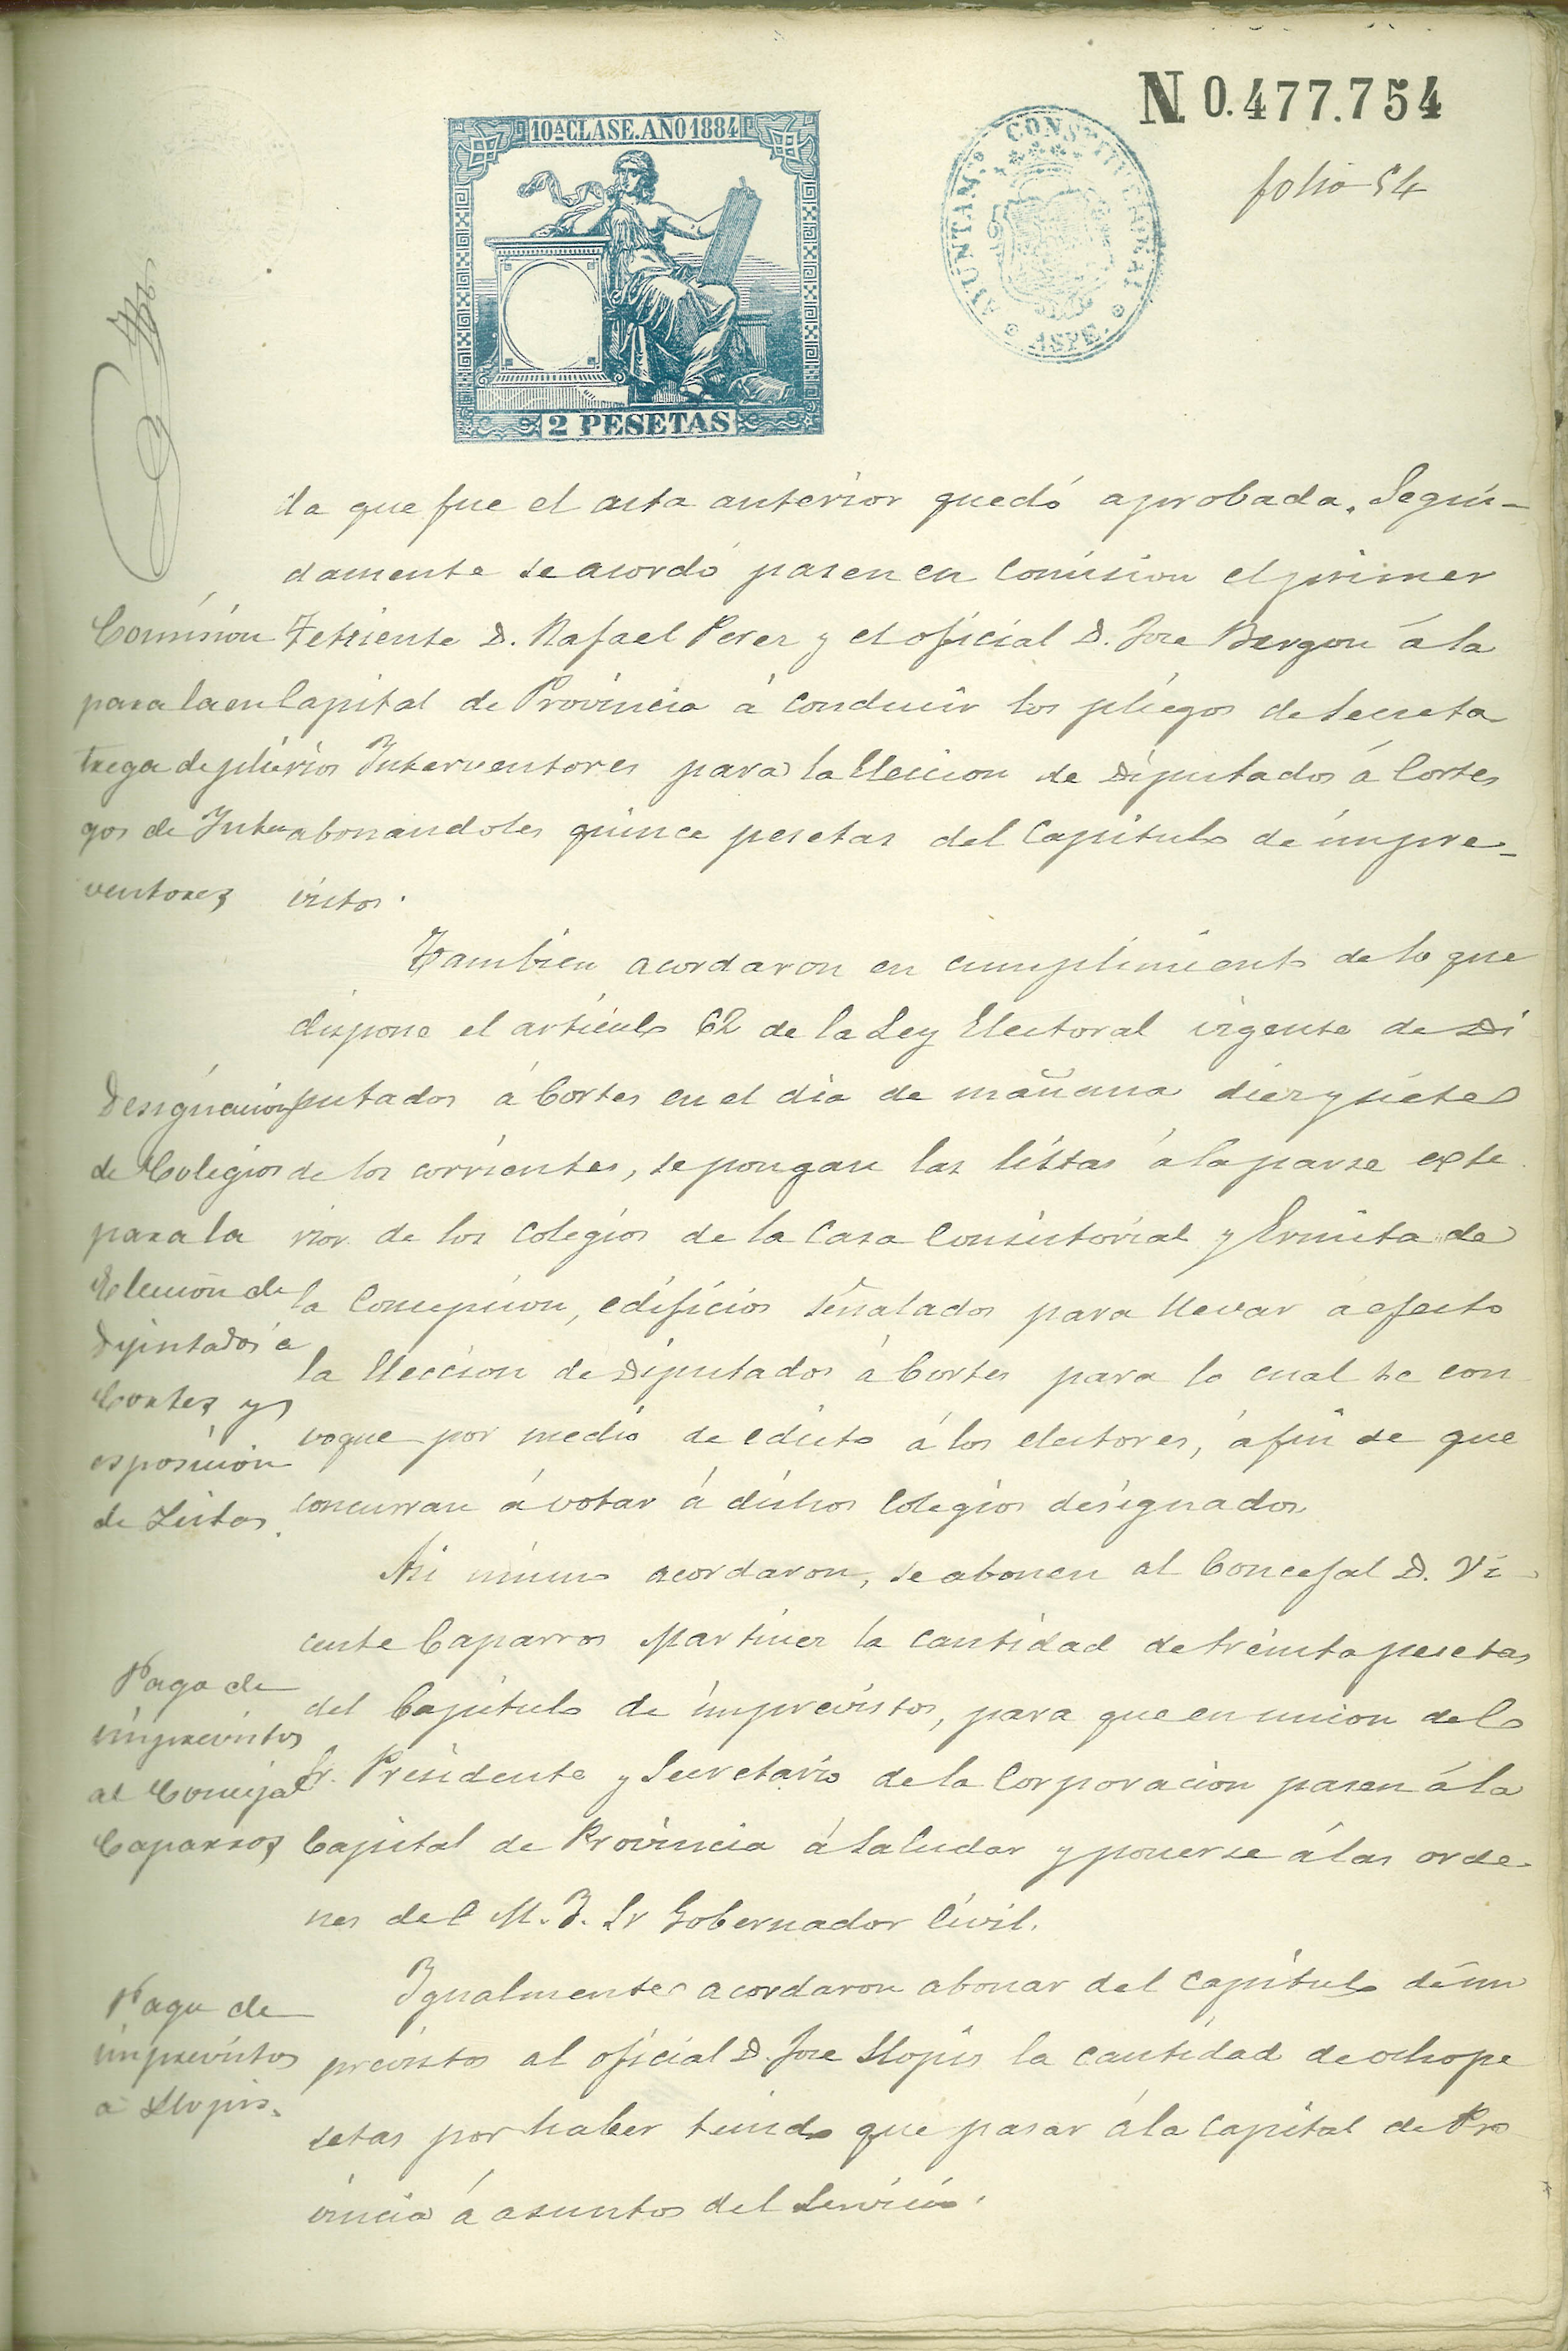 N 0.477.754
10ª CLASE. AÑO 1884
AYUNTAMTO CONSTITUCIONAL
ASPE.
folio 54
2 PESETAS
da que fue el acta anterior quedó aprobada. Segui-
damente se acordó pasen en comision el primer
Teniente D. Rafael Perez y el oficial D. Jose Burgon á la
Capital de Provincia á conducir los pliegos de Secreta
rios Interventores para la Eleccion de Diputados á Cortes
abonandoles quince pesetas del Capitulo de impre-
vistos.
Comisión
para la en
trega de plie
gos de Inter
ventores
Tambien acordaron en cumplimiento de lo que
dispone el articulo 62 de la Ley Electoral vigente de Di
putados á Cortes en el dia de mañana diez y siete
de los corrientes, se pongan las listas á la parte exte
rior de los Colegios de la Casa Consistorial y Ermita de
la Concepcion, edificios señalados para llevar á efecto
la Eleccion de Diputados á Cortes para lo cual se con
voque por medio de edicto á los electores, á fin de que
concurran á votar á dichos Colegios designados
Designación
de Colegios
para la
Elección de
Diputados á
Cortes y
esposición
de Listas.
Asi mismo acordaron, se abonen al Concejal D. Vi-
cente Caparros Martinez la cantidad de treinta pesetas
del Capitulo de imprevistos, para que en union del
Sr. Presidente y Secretario de la Corporacion pasen á la
Capital de Provincia á saludar y ponerse á las orde-
nes del M. I. Sr Gobernador Civil.
Pago de
imprevistos
al Concejal
Caparros
Igualmente acordaron abonar del capitulo de im
previstos al oficial D. Jose Llopis la cantidad de ocho pe
setas por haber tenido que pasar á la Capital de Pro
vincia á asuntos del Servicio.
Pago de
imprevistos
a Llopis.